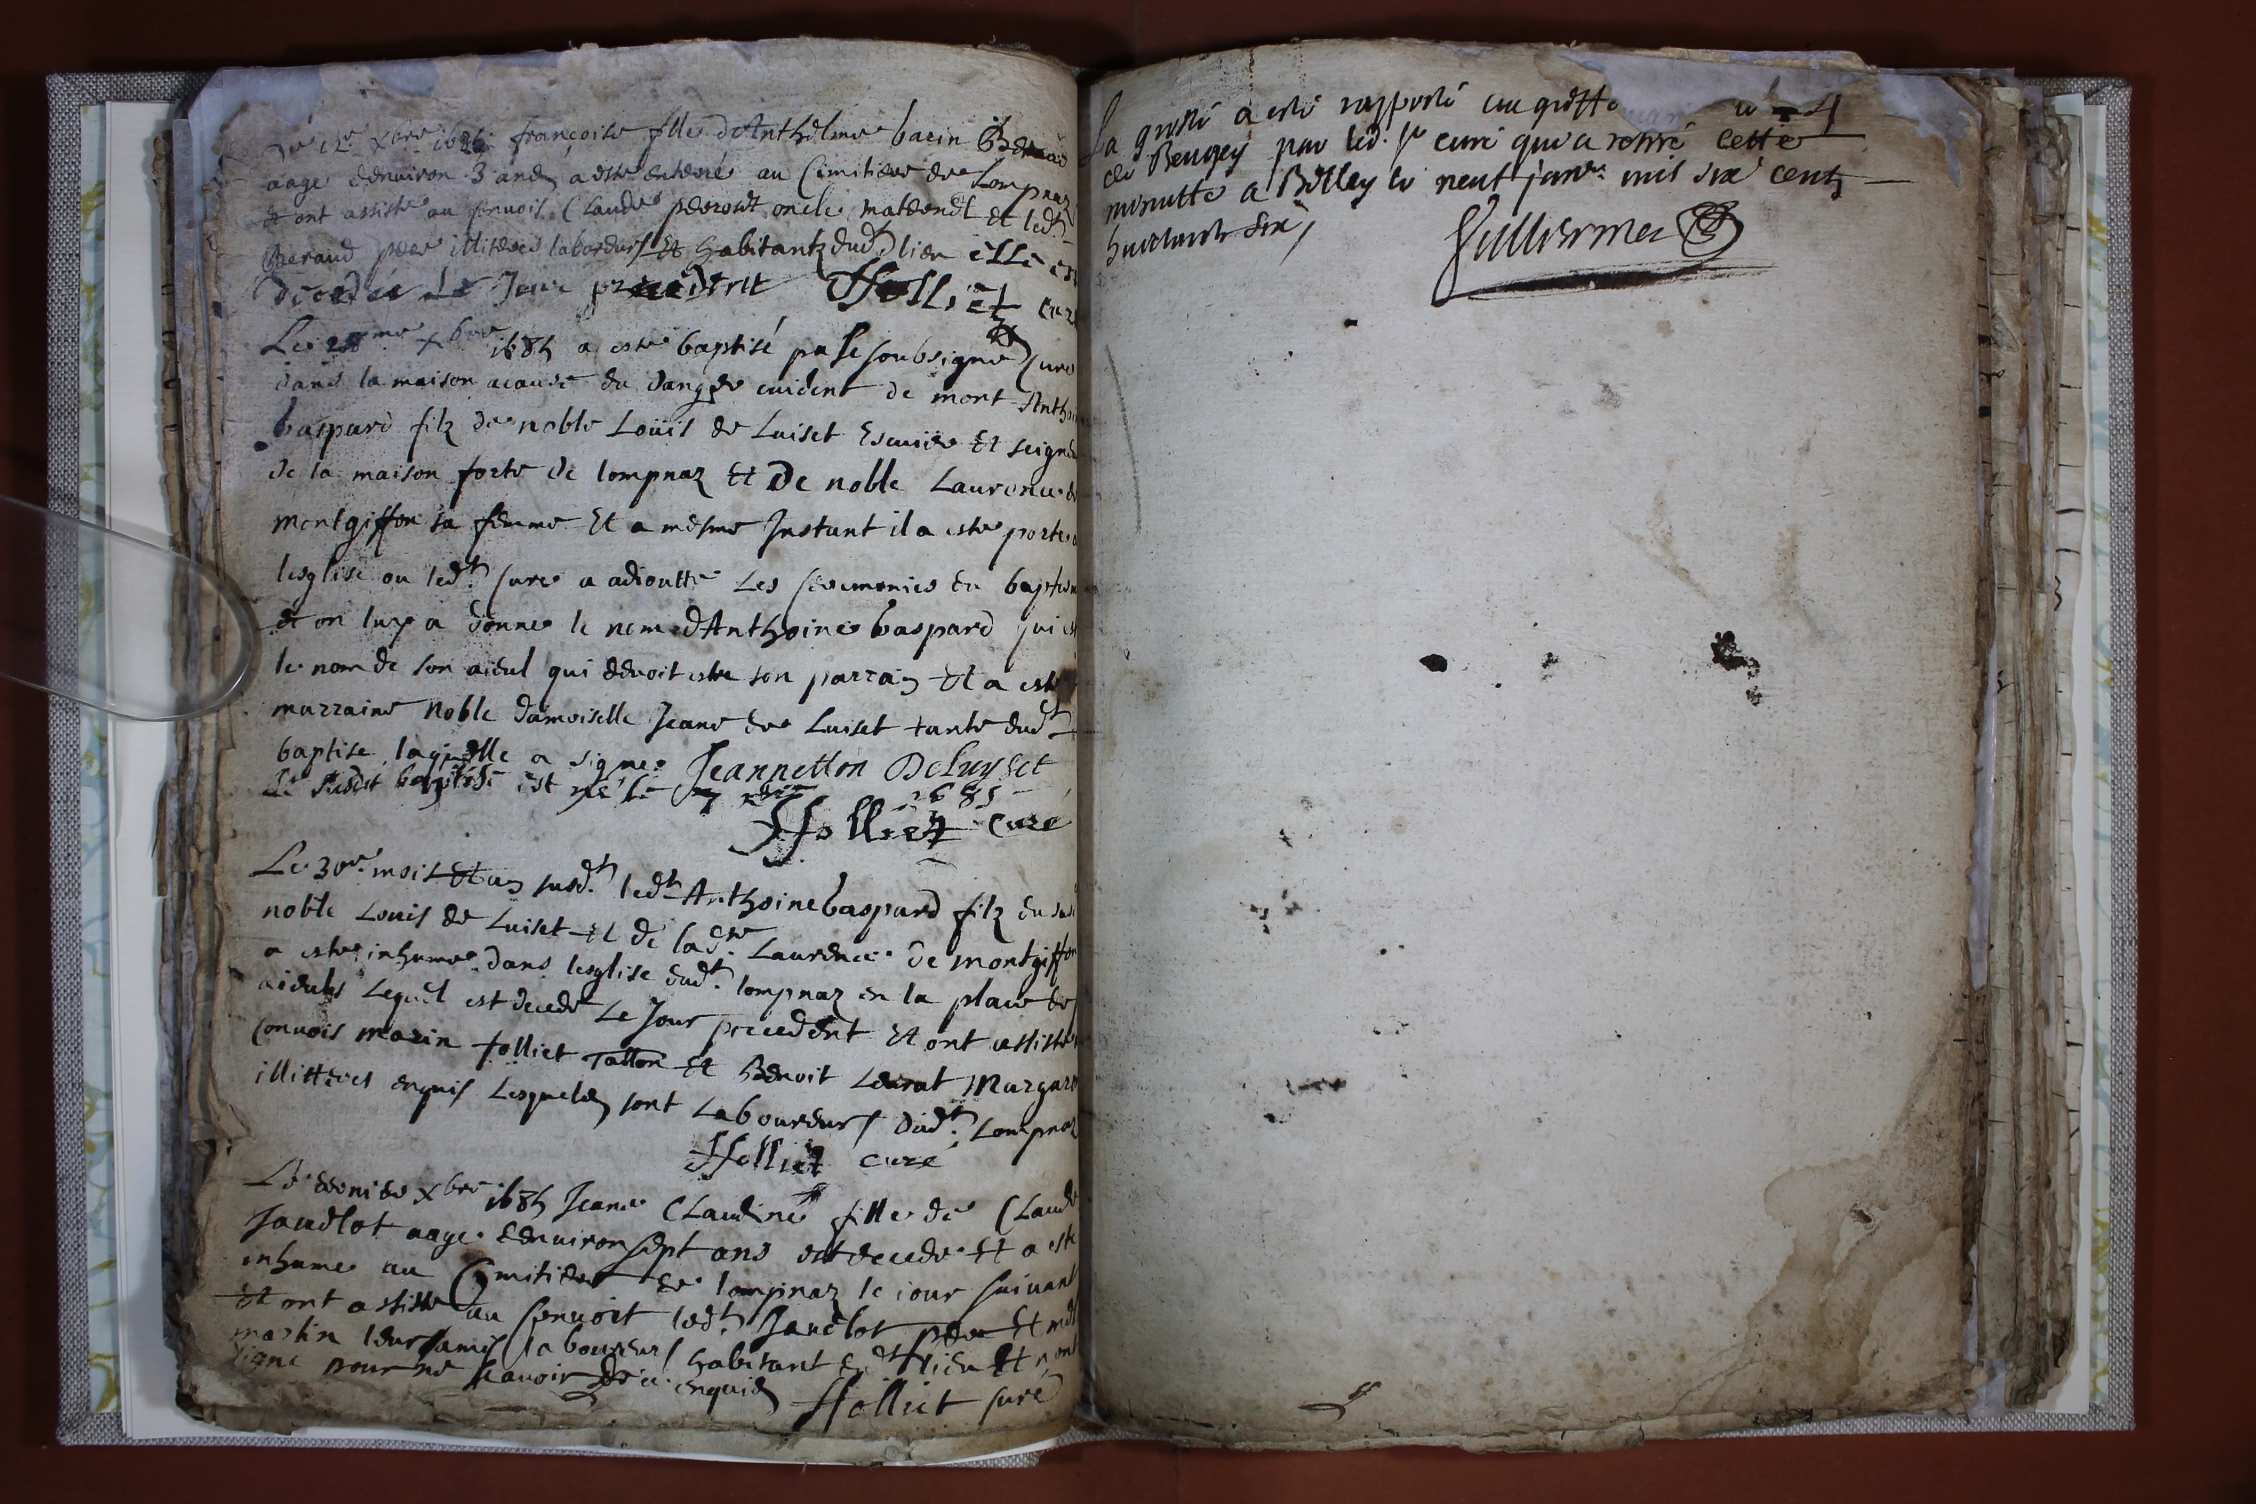 xbre 1685 françoise fille dAnthelme barin Beraud
aage denuiron 3 ans a este enterré au Cimitiere de Lompnaz
et ont assisté au conuois Claude peerout oncle maternel et ledt
Beraud pere illiteres laboureurs et habitants dudt lieu elle est
decedée Le Jour precedent ffolliet curé
Le 28me xbre 1685 a este baptisé pa le soubsigné Curé
dans la maison a cause du danger euident de mort Anthoine
baspard filz de noble Loüis de Luiset Escuiier et seigneur
de la maison forte de lompnaz et De noble Laurence de
montgiffon sa femme et a mesme Instant il a este porte a
lesglise ou ledt. curé a adioutté Les ceremonies du baptesme
et on luy a donne le nom dAnthoine baspard qui est
le nom de son aieul qui deuoit estre son parrain et a esté
marraine Noble damoiselle Jeane de Luiset tante dudt
baptise laquelle a signe Jeannetton DeLuyset
Le susdit baptisé est né le 7 xbre 1685
ffolliet Curé
Le 30me mois et an susdt. ledt Anthoine baspard filz du susdt
noble Louis de Luiset et de ladte. Laurence de montgiffon
a este inhume dans lesglise dudt. lompnaz en la place de
aieuls Lequel est decede Le Jour precedent et ont assiste
Conuois marin folliet Tallon et Benoit Leurat Margaron
illitteres enquis Lesquelz sont Laboureurs dudt. Lompnaz
ffolliet curé
Le dernier xbre 1685 Jeane Claudine fille de Claude
Jaudlot aage denuiron sept ans est decede et a este
inhume au Cymitiere de lompnaz le iour suiuant
et ont assisté au conuoit ledt. Jaudlot pere et
martin leurs amis laboureurs habitant dudt lieu et n'ont
signé pour ne scauoir de ce enquis
ffolliet curé
La grosse a esté rapporté au greffe
de Beugey par led. sr curé qui a retiré cette
minutte a Belley le neuf janer. mil six cents
huictante six /
Guilliermet